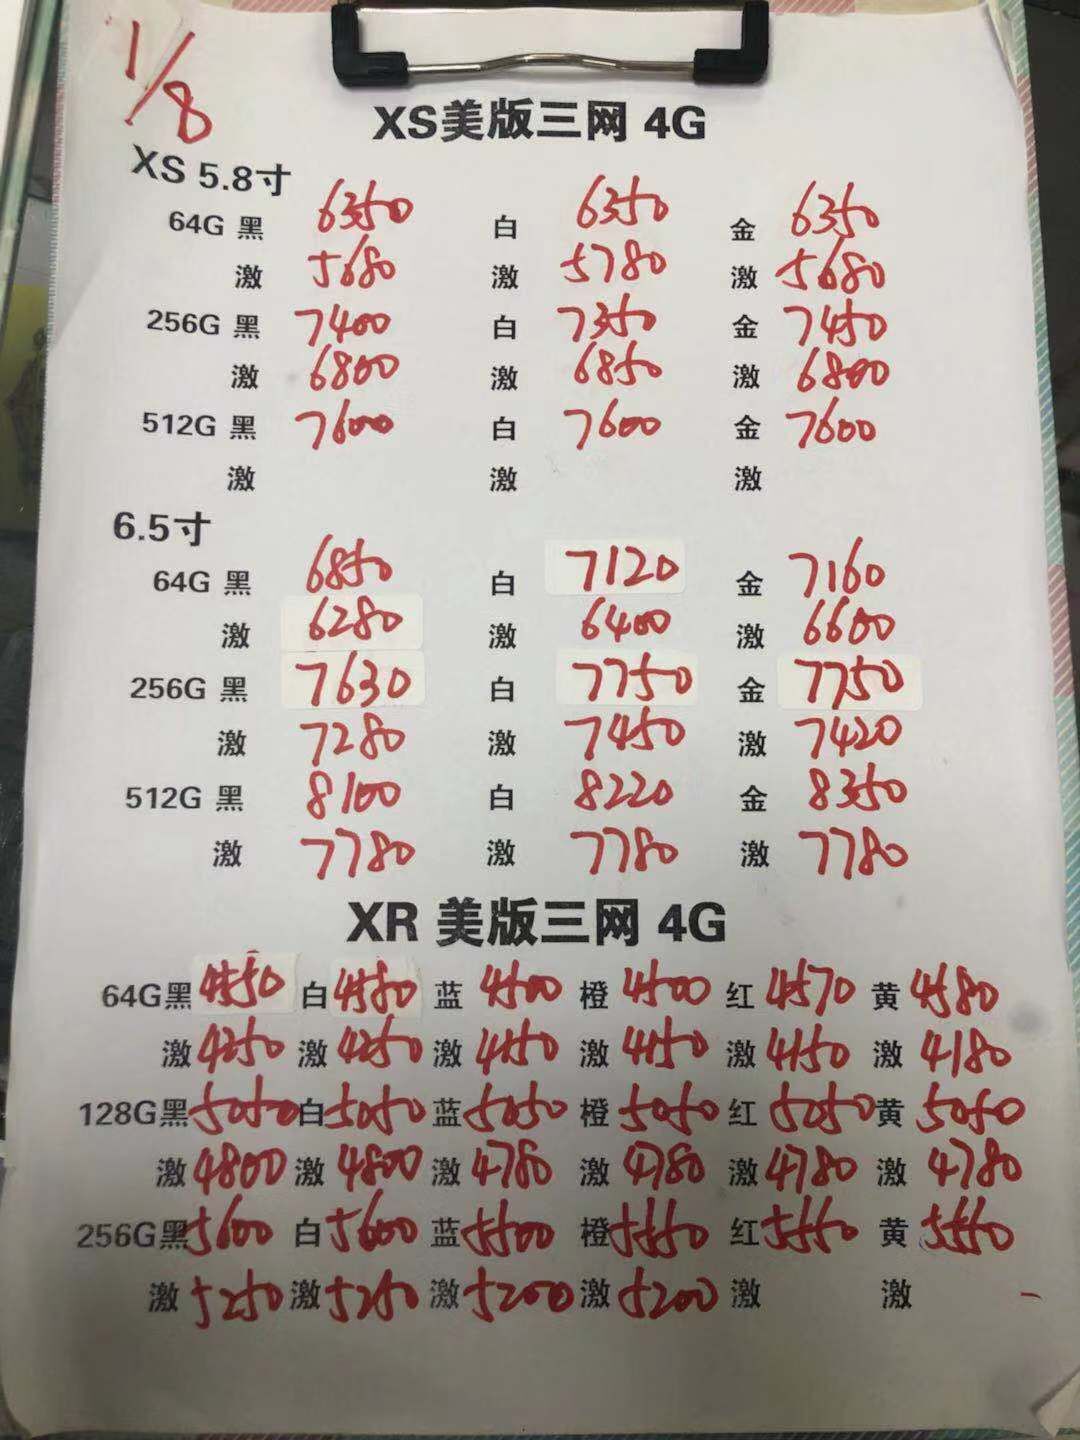 1/8
XS美版三网 4G
XS 5.8寸
64G 黑 6350 白 6350 金 6350
激 5680 激 5780 激 5680
256G 黑 7400 白 7350 金 7450
激 6800 激 6850 激 6800
512G 黑 7600 白 7600 金 7600
激 激 激
6.5寸
64G 黑 6850 白 7120 金 7160
激 6280 激 6400 激 6600
256G 黑 7630 白 7750 金 7750
激 7280 激 7450 激 7420
512G 黑 8100 白 8220 金 8350
激 7780 激 7780 激 7780
XR 美版三网 4G
64G黑 4550 白 4550 蓝 4500 橙 4500 红 4570 黄 4580
激 4250 激 4250 激 4150 激 4150 激 4150 激 4180
128G黑 5050 白 5050 蓝 5050 橙 5050 红 5050 黄 5050
激 4800 激 4800 激 4780 激 4780 激 4780 激 4780
256G黑 5600 白 5600 蓝 5500 橙 5550 红 5550 黄 5550
激 5250 激 5250 激 5200 激 5200 激 激